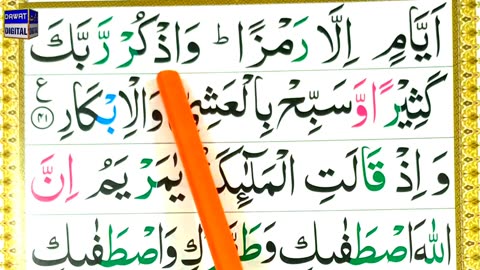 DAWAT
DIGITAL
اَيَّامٍ اِلَّا رَمْزًا ؕ وَاذْكُرْ رَّبَّكَ
كَثِيْرًا وَّ سَبِّحْ بِالْعَشِيِّ وَالْاِبْكَارِ ﴿۴۱﴾ ع
وَ اِذْ قَالَتِ الْمَلٰٓئِكَةُ يٰمَرْيَمُ اِنَّ
اللّٰهَ اصْطَفٰىكِ وَطَهَّرَكِ وَاصْطَفٰىكِ